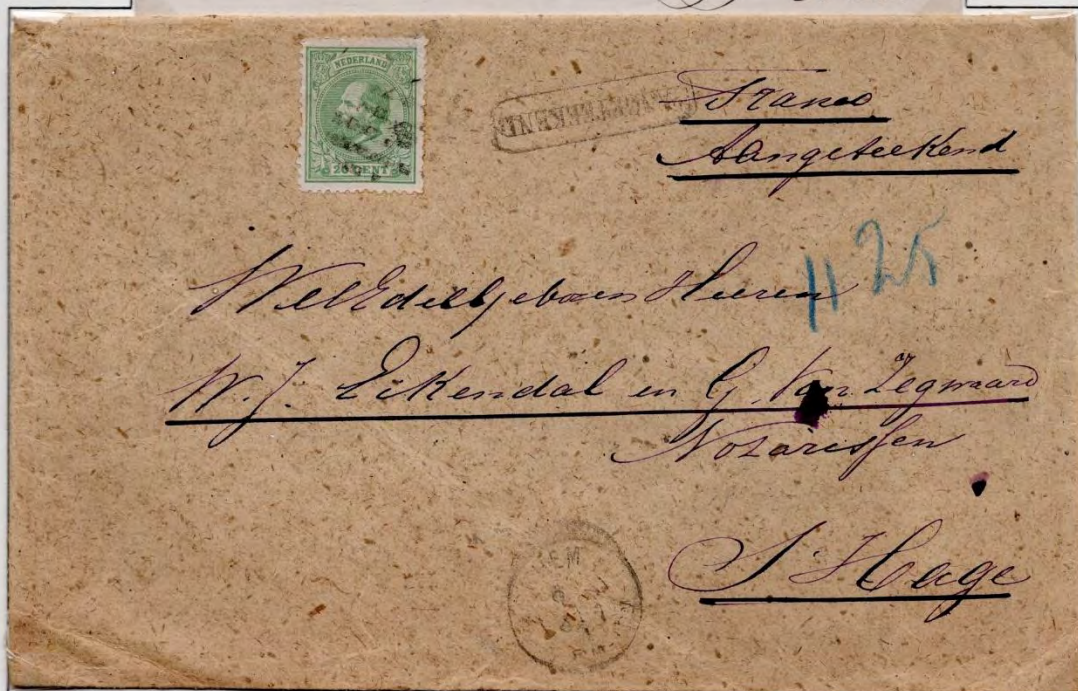 NEDERLAND
20 CENT
AANGETEEKEND
Franco
Aangeteekend
11 25
WelEdelGeboren Heeren
W. J. Eikendal en G. Van Zegwaard
Notarissen
S'Hage